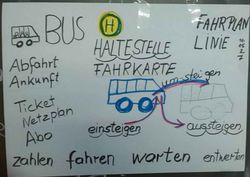 BUS
H
HALTESTELLE
FAHRKARTE
FAHRPLAN
LINIE
Abfahrt
Ankunft
Ticket
Netzplan
Abo
umsteigen
einsteigen
aussteigen
zahlen fahren warten entwerten